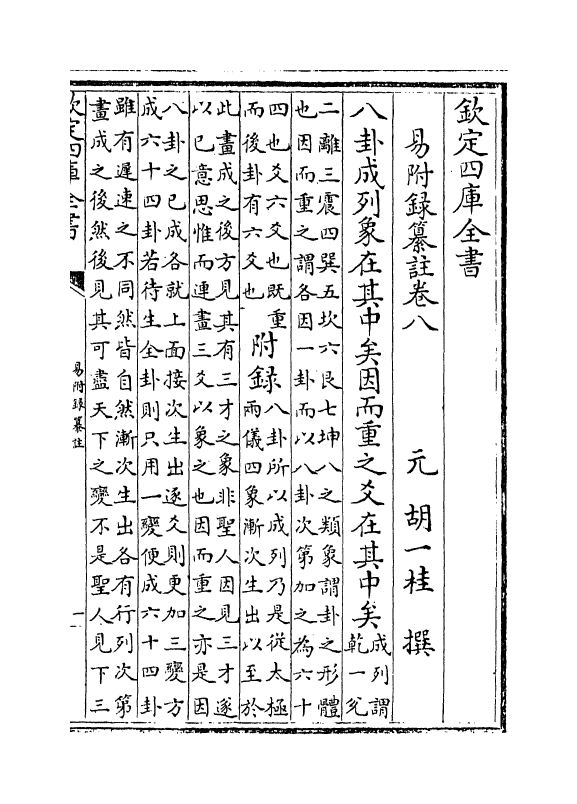 欽定四庫全書
易附録纂註卷八　元　胡一桂　撰
八卦成列象在其中矣因而重之爻在其中矣
成列謂
乾一兊
二離三震四巽五坎六艮七坤八之類象謂卦之形體
也因而重之謂各因一卦而以八卦次第加之為六十
四也爻六爻也既重
而後卦有六爻也
附録
八卦所以成列乃是從太極
兩儀四象漸次生出以至於
此畫成之後方見其有三才之象非聖人因見三才遂
以已意思惟而連畫三爻以象之也因而重之亦是因
八卦之已成各就上面接次生出逐爻則更加三變方
成六十四卦若待生全卦則只用一變便成六十四卦
雖有遲速之不同然皆自然漸次生出各有行列次第
畫成之後然後見其可盡天下之變不是聖人見下三
欽定四庫全書
易附録纂註
一